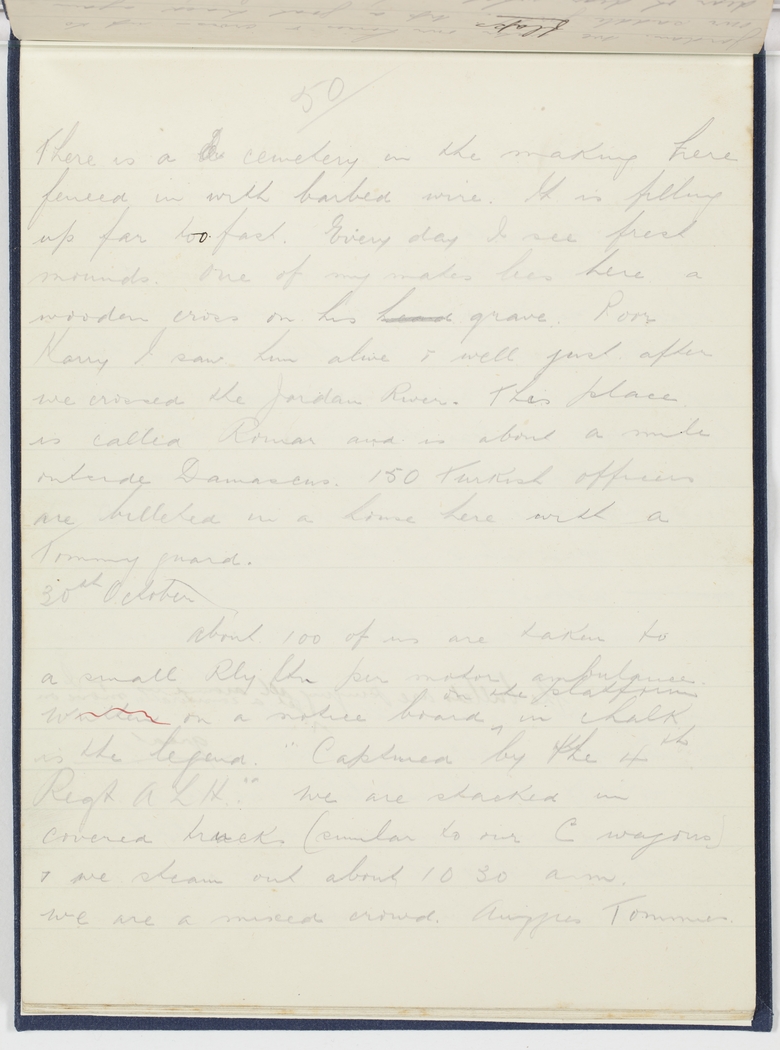 50
There is a cemetery in the making here
fenced in with barbed wire. It is filling
up far too fast. Every day I see fresh
mounds. One of my mates lies here a
wooden cross on his head grave. Poor
Harry I saw him alive & well just after
we crossed the Jordan River. This place
is called Romar and is about a mile
outside Damascus. 150 Turkish officers
are billeted in a house here with a
Tommy guard.
30th October
About 100 of us are taken to
a small Rly Stn per motor ambulance.
on the platform
Written on a notice board, in chalk
is the legend. "Captured by the 4th
Regt A L H." We are stacked in
covered trucks (similar to our C wagons)
& we steam out about 10 30 a.m.
We are a mixed crowd. Tommies